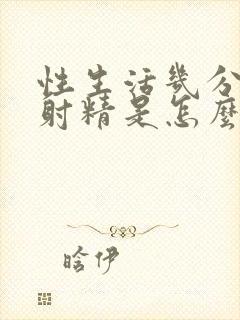 性生活幾分
射精是怎麼
晗伊